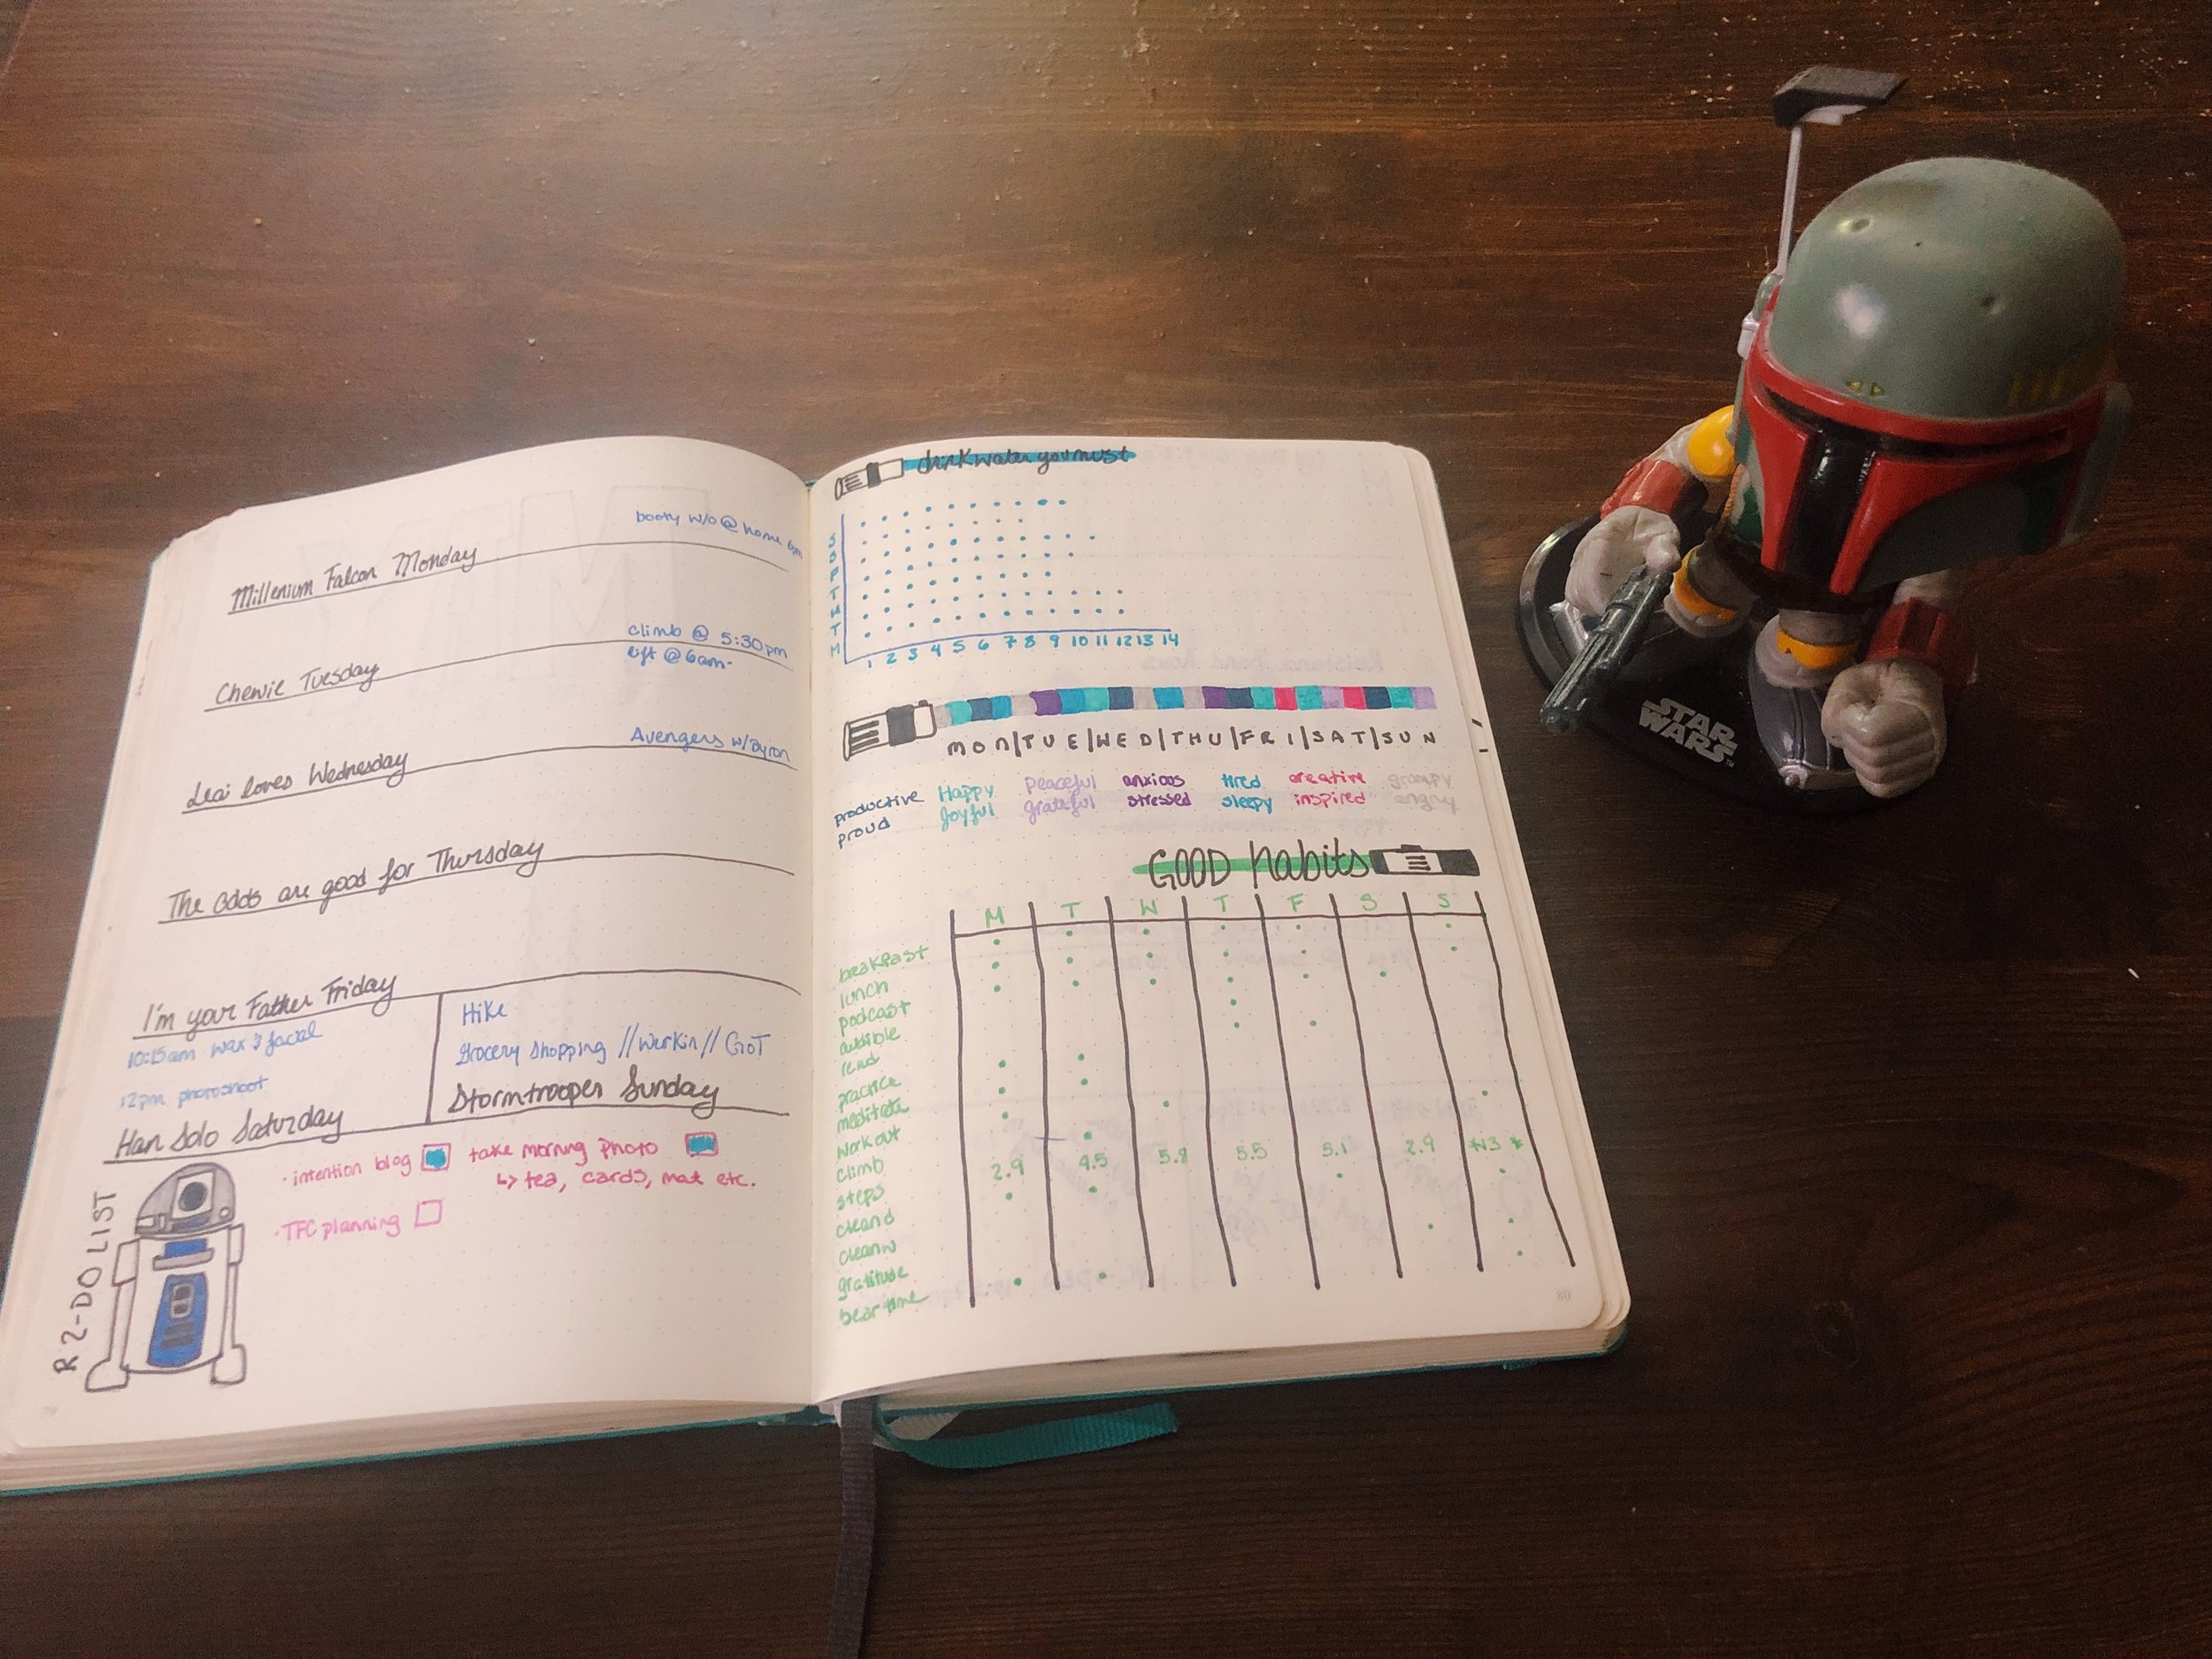 booty w/o @ home 6pm
Millenium Falcon Monday
climb @ 5:30pm
lift @ 6am
Chewie Tuesday
Avengers w/Byron
Leai loves Wednesday
The odds are good for Thursday
I'm your Father Friday
10:15am wax & facial
12pm photoshoot
Han Solo Saturday
Hike
Grocery Shopping // Werkin // GoT
Stormtrooper Sunday
R2-DO LIST
· intention blog
take morning photo
↳ tea, cards, mat etc.
· TFC planning
drink water you must
S
S
F
T
W
T
M
1 2 3 4 5 6 7 8 9 10 11 12 13 14
MON|TUE|WED|THU|FRI|SAT|SUN
productive Happy peaceful anxious tired creative grumpy
proud Joyful grateful stressed sleepy inspired angry
GOOD habits
M T W T F S S
breakfast
lunch
podcast
audible
read
practice
meditate
workout
climb
steps 2.9 4.5 5.8 5.5 5.1 2.9
clean d
clean w
gratitude
bear time
80
STAR
WARS™